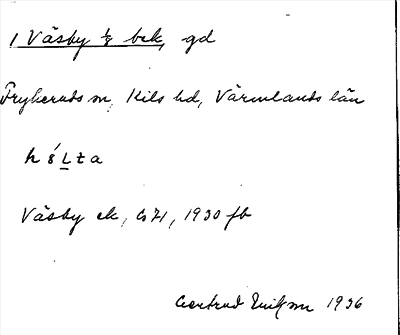 1 Väsby ½ bek, gd
Frykeruds sn, Kils hd, Värmlands län
Väsby ek, 1930 fb
Gertrud 1936